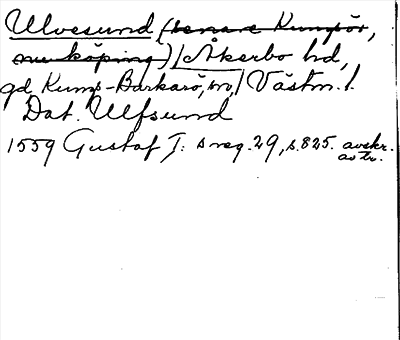 Ulvesund (senare Kungsör,
nu köping) / Åkerbo hd,
gd Kungs-Barkarö, sn, / Västm. l.
Dat. Ulfsund
1559 Gustaf I: s reg. 29, s. 825. avskr.
avtr.